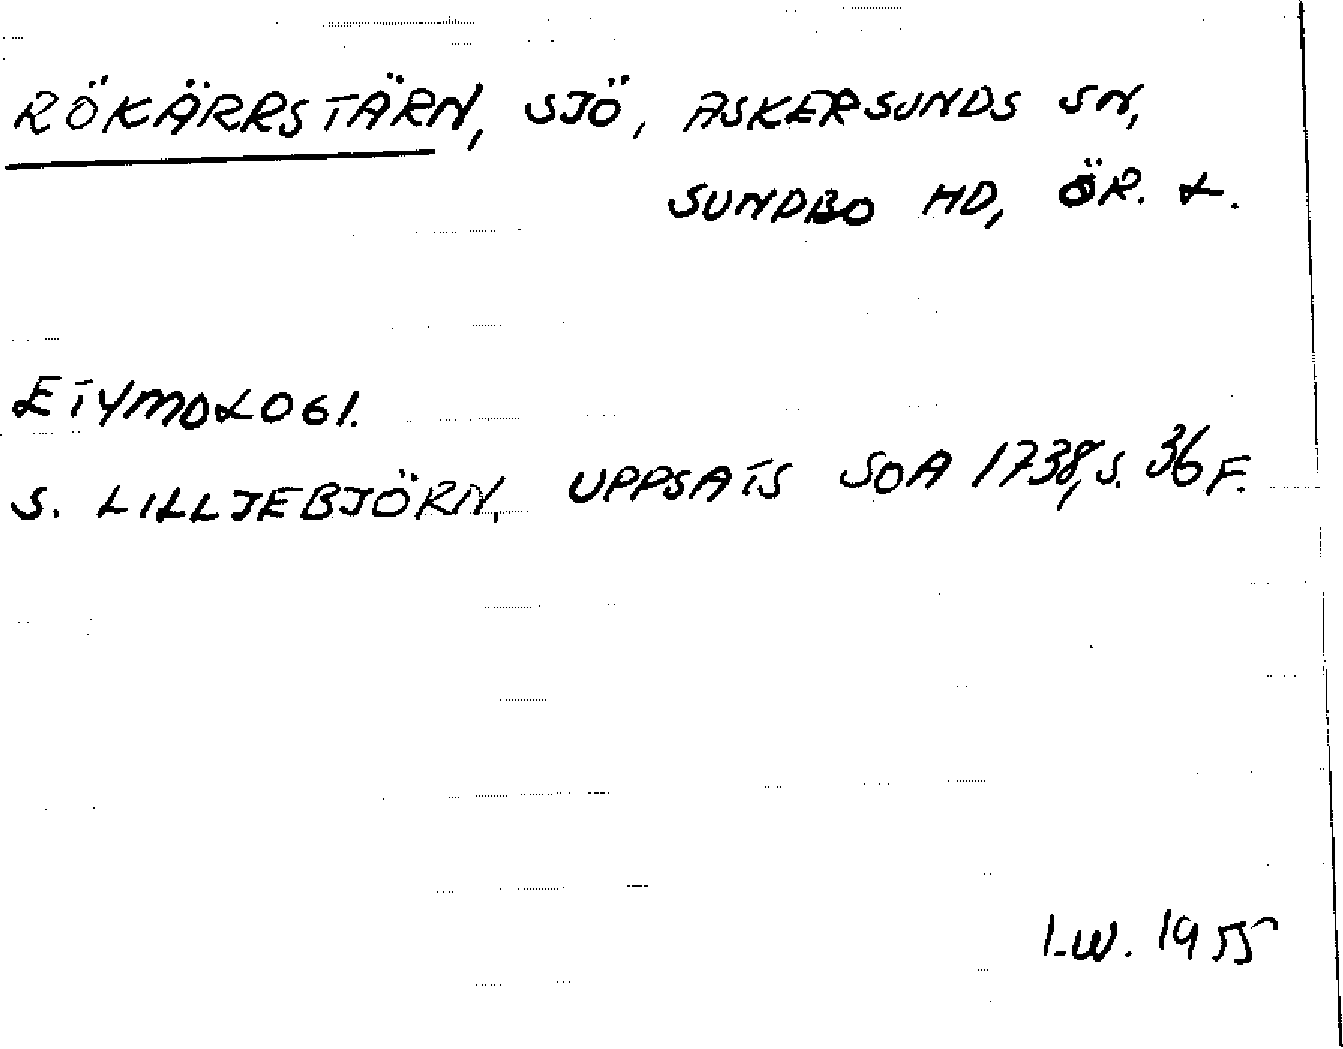 RÖKÄRRSTÄRN, SJÖ, ASKERSUNDS SN,
SUNDBO HD, ÖR. L.
ETYMOLOGI.
S. LILLJEBJÖRN, UPPSATS SOA 1738, S. 36 F.
I.W. 1955